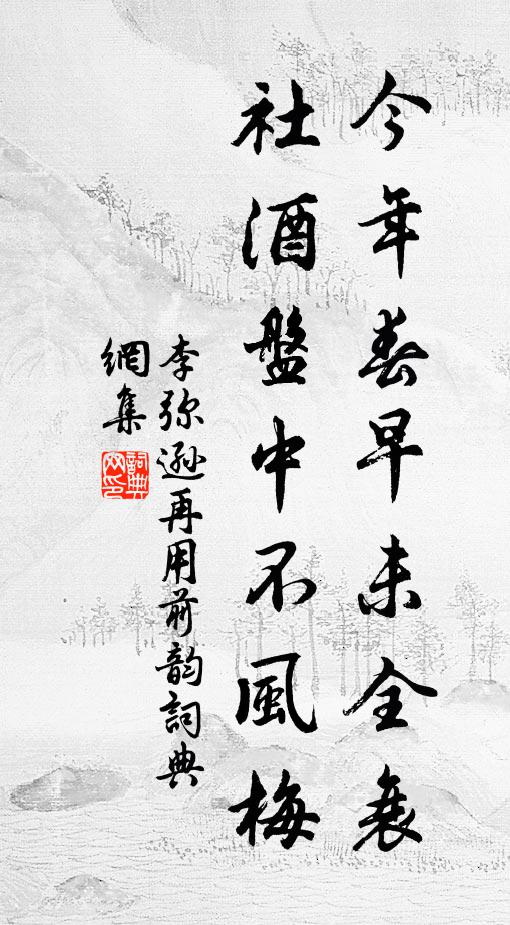 今年春早未全衰
社酒盤中不風梅
李弥遜再用前韵詞典
網集
詞典網印